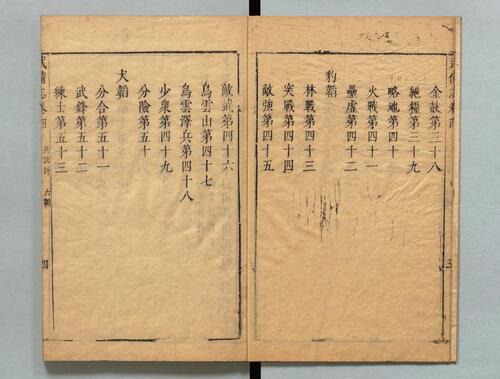 金鼓第三十八
絕糧第三十九
略地第四十
火戰第四十一
壘虛第四十二
豹韜
林戰第四十三
突戰第四十四
敵強第四十五
敵武第四十六
烏雲山第四十七
烏雲澤兵第四十八
少衆第四十九
分險第五十
犬韜
分合第五十一
武鋒第五十二
練士第五十三
武備志卷四
兵訣評 六韜
四